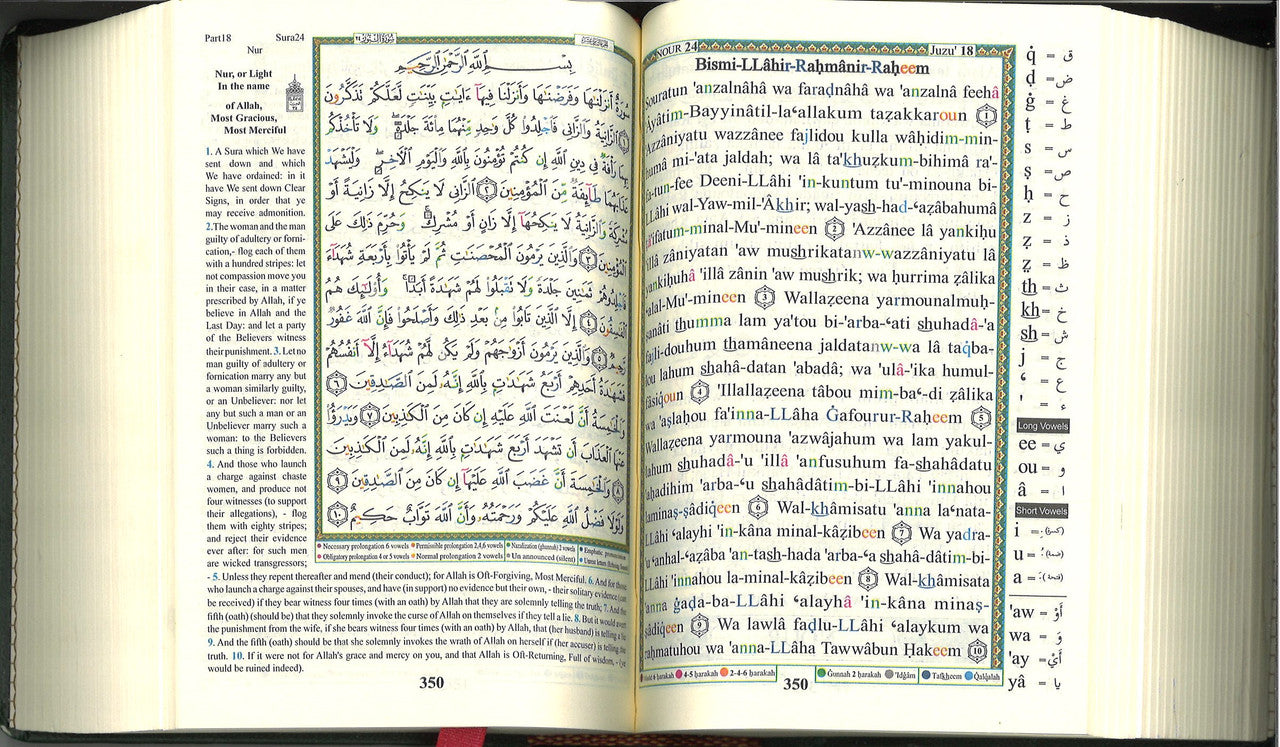 Part18 Sura24
Nur
Nur, or Light
In the name
of Allah,
Most Gracious,
Most Merciful
1. A Sura which We have
sent down and which
We have ordained: in it
have We sent down Clear
Signs, in order that ye
may receive admonition.
2.The woman and the man
guilty of adultery or forni-
cation,- flog each of them
with a hundred stripes: let
not compassion move you
in their case, in a matter
prescribed by Allah, if ye
believe in Allah and the
Last Day: and let a party
of the Believers witness
their punishment. 3. Let no
man guilty of adultery or
fornication marry any but
a woman similarly guilty,
or an Unbeliever: nor let
any but such a man or an
Unbeliever marry such a
woman: to the Believers
such a thing is forbidden.
4. And those who launch
a charge against chaste
women, and produce not
four witnesses (to support
their allegations), - flog
them with eighty stripes;
and reject their evidence
ever after: for such men
are wicked transgressors;
- 5. Unless they repent thereafter and mend (their conduct); for Allah is Oft-Forgiving, Most Merciful. 6. And for those
who launch a charge against their spouses, and have (in support) no evidence but their own, - their solitary evidence (can
be received) if they bear witness four times (with an oath) by Allah that they are solemnly telling the truth; 7. And the
fifth (oath) (should be) that they solemnly invoke the curse of Allah on themselves if they tell a lie. 8. But it would avert
the punishment from the wife, if she bears witness four times (with an oath) by Allah, that (her husband) is telling a lie
9. And the fifth (oath) should be that she solemnly invokes the wrath of Allah on herself if (her accuser) is telling the
truth. 10. If it were not for Allah's grace and mercy on you, and that Allah is Oft-Returning, Full of wisdom, - (ye
would be ruined indeed).
350
سُورَةُ النُّورِ ٢٤
بِسْمِ اللَّهِ الرَّحْمَٰنِ الرَّحِيمِ
سُورَةٌ أَنزَلْنَاهَا وَفَرَضْنَاهَا وَأَنزَلْنَا فِيهَا آيَاتٍ بَيِّنَاتٍ لَّعَلَّكُمْ تَذَكَّرُونَ
١ الزَّانِيَةُ وَالزَّانِي فَاجْلِدُوا كُلَّ وَاحِدٍ مِّنْهُمَا مِائَةَ جَلْدَةٍ وَلَا تَأْخُذْكُم
بِهِمَا رَأْفَةٌ فِي دِينِ اللَّهِ إِن كُنتُمْ تُؤْمِنُونَ بِاللَّهِ وَالْيَوْمِ الْآخِرِ وَلْيَشْهَدْ
عَذَابَهُمَا طَائِفَةٌ مِّنَ الْمُؤْمِنِينَ ٢ الزَّانِي لَا يَنكِحُ إِلَّا زَانِيَةً أَوْ
مُشْرِكَةً وَالزَّانِيَةُ لَا يَنكِحُهَا إِلَّا زَانٍ أَوْ مُشْرِكٌ وَحُرِّمَ ذَٰلِكَ عَلَى
الْمُؤْمِنِينَ ٣ وَالَّذِينَ يَرْمُونَ الْمُحْصَنَاتِ ثُمَّ لَمْ يَأْتُوا بِأَرْبَعَةِ شُهَدَاءَ
فَاجْلِدُوهُمْ ثَمَانِينَ جَلْدَةً وَلَا تَقْبَلُوا لَهُمْ شَهَادَةً أَبَدًا وَأُولَٰئِكَ هُمُ
الْفَاسِقُونَ ٤ إِلَّا الَّذِينَ تَابُوا مِن بَعْدِ ذَٰلِكَ وَأَصْلَحُوا فَإِنَّ اللَّهَ غَفُورٌ
رَّحِيمٌ ٥ وَالَّذِينَ يَرْمُونَ أَزْوَاجَهُمْ وَلَمْ يَكُن لَّهُمْ شُهَدَاءُ إِلَّا أَنفُسُهُمْ
فَشَهَادَةُ أَحَدِهِمْ أَرْبَعُ شَهَادَاتٍ بِاللَّهِ إِنَّهُ لَمِنَ الصَّادِقِينَ ٦
وَالْخَامِسَةُ أَنَّ لَعْنَتَ اللَّهِ عَلَيْهِ إِن كَانَ مِنَ الْكَاذِبِينَ ٧ وَيَدْرَؤُا
عَنْهَا الْعَذَابَ أَن تَشْهَدَ أَرْبَعَ شَهَادَاتٍ بِاللَّهِ إِنَّهُ لَمِنَ الْكَاذِبِينَ
٨ وَالْخَامِسَةَ أَنَّ غَضَبَ اللَّهِ عَلَيْهَا إِن كَانَ مِنَ الصَّادِقِينَ ٩
وَلَوْلَا فَضْلُ اللَّهِ عَلَيْكُمْ وَرَحْمَتُهُ وَأَنَّ اللَّهَ تَوَّابٌ حَكِيمٌ ١٠
Necessary prolongation 6 vowels Permissible prolongation 2,4,6 vowels Nazalization (ghunnah) 2 vowels Emphatic pronunciation
Obligatory prolongation 4 or 5 vowels Normal prolongation 2 vowels Un announced (silent)
NOUR 24 Juzu' 18
Bismi-LLâhir-Raḥmânir-Raḥeem
Souratun 'anzalnâhâ wa faraḍnâhâ wa 'anzalnâ feehâ
'Âyâtim-Bayyinâtil-la‘allakum taẓakkaroun 1
'Azzâniyatu wazzânee fajlidou kulla wâḥidim-min-
humâ mi-'ata jaldah; wa lâ ta'khuẓkum-bihimâ ra'-
fa-tun-fee Deeni-LLâhi 'in-kuntum tu'-minouna bi-
LLâhi wal-Yaw-mil-'Âkhir; wal-yash-had-‘aẓâbahumâ
ṭâ'ifatum-minal-Mu'-mineen 2 'Azzânee lâ yankiḥu
'illâ zâniyatan 'aw mushrikatanw-wazzâniyatu lâ
yankiḥuhâ 'illâ zânin 'aw mushrik; wa ḥurrima ẓâlika
‘alal-Mu'-mineen 3 Wallaẓeena yarmounalmuḥ-
ṣanâti thumma lam ya'tou bi-'arba-‘ati shuhadâ-'a
fajli-douhum thamâneena jaldatanw-wa lâ taqba-
lou lahum shahâ-datan 'abadâ; wa 'ulâ-'ika humul-
fâsiqoun 4 'Illallaẓeena tâbou mim-ba‘-di ẓâlika
wa 'aṣlaḥou fa'inna-LLâha Ġafourur-Raḥeem 5
Wallaẓeena yarmouna 'azwâjahum wa lam yakul-
lahum shuhadâ-'u 'illâ 'anfusuhum fa-shahâdatu
'aḥadihim 'arba-‘u shahâdâtim-bi-LLâhi 'innahou
laminaṣ-ṣâdiqeen 6 Wal-khâmisatu 'anna la‘nata-
LLâhi ‘alayhi 'in-kâna minal-kâẓibeen 7 Wa yadra-
'u ‘anhal-‘aẓâba 'an-tash-hada 'arba-‘a shahâ-dâtim-bi-
LLâhi 'innahou la-minal-kâẓibeen 8 Wal-khâmisata
'anna ġaḍa-ba-LLâhi ‘alayhâ 'in-kâna minaṣ-
ṣâdiqeen 9 Wa lawlâ faḍlu-LLâhi ‘alaykum wa
raḥmatuhou wa 'anna-LLâha Tawwâbun Ḥakeem 10
Madd 6 ḥarakah 4-5 ḥarakah 2-4-6 ḥarakah Ġunnah 2 ḥarakah 'Idġâm Tafkheem Qalqalah
350
q̇ = ق
ḍ = ض
ġ = غ
ṭ = ط
s = س
ṣ = ص
ḥ = ح
z = ز
ẓ = ذ
ẓ = ظ
th = ث
kh = خ
sh = ش
j = ج
‘ = ع
' = ء
Long Vowels
ee = ي
ou = و
â = ا
Short Vowels
i = (كسرة)
u = (ضمة)
a = (فتحة)
'aw = أَوْ
wa = وَ
'ay = أَيْ
yâ = يا